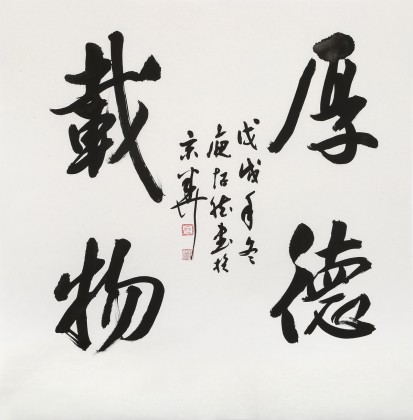 厚德
載物
戊戌年冬
書於
京華